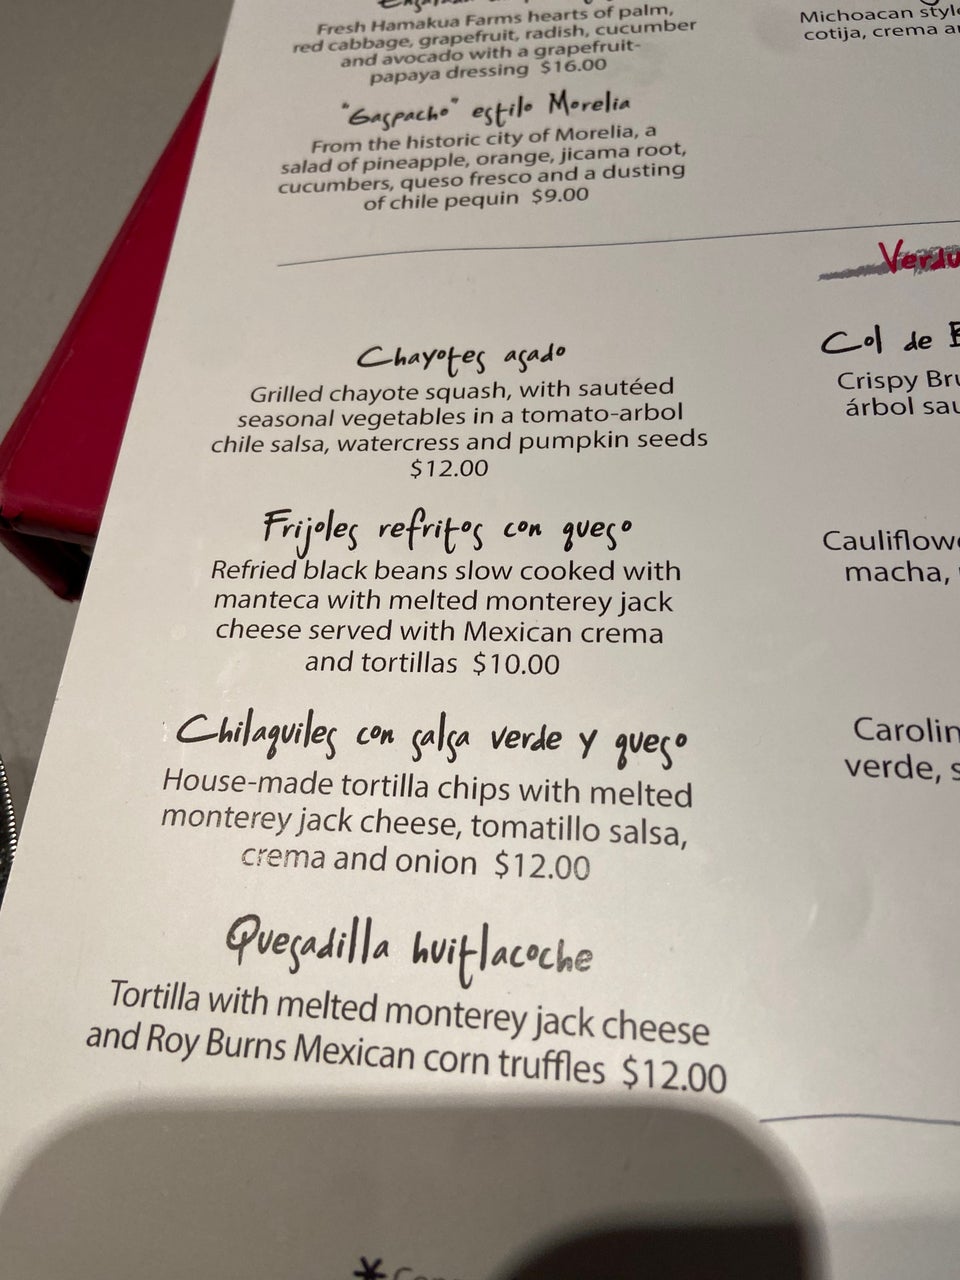 Fresh Hamakua Farms hearts of palm,
red cabbage, grapefruit, radish, cucumber
and avocado with a grapefruit-
papaya dressing $16.00
"Gaspacho" estilo Morelia
From the historic city of Morelia, a
salad of pineapple, orange, jicama root,
cucumbers, queso fresco and a dusting
of chile pequin $9.00
Michoacan style
cotija, crema
Chayotes asado
Grilled chayote squash, with sautéed
seasonal vegetables in a tomato-arbol
chile salsa, watercress and pumpkin seeds
$12.00
Frijoles refritos con queso
Refried black beans slow cooked with
manteca with melted monterey jack
cheese served with Mexican crema
and tortillas $10.00
Chilaquiles con salsa verde y queso
House-made tortilla chips with melted
monterey jack cheese, tomatillo salsa,
crema and onion $12.00
Quesadilla huitlacoche
Tortilla with melted monterey jack cheese
and Roy Burns Mexican corn truffles $12.00
Col de
Crispy
árbol
macha,
verde,